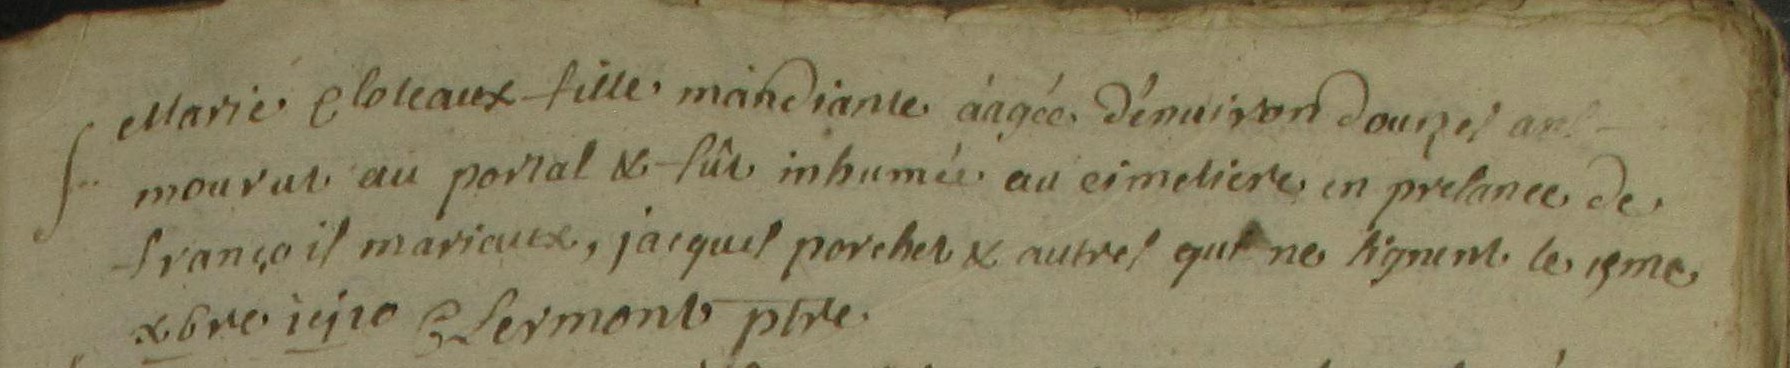 Marie Cloteaux fille mandiante áagée d'énuiron douzes ans
mourut au portal & fût inhumée au cimetiere en presance de
françois mariaux, jacques porchet & autres qui ne signent le 15me
xbre 1710 Clermont ptre